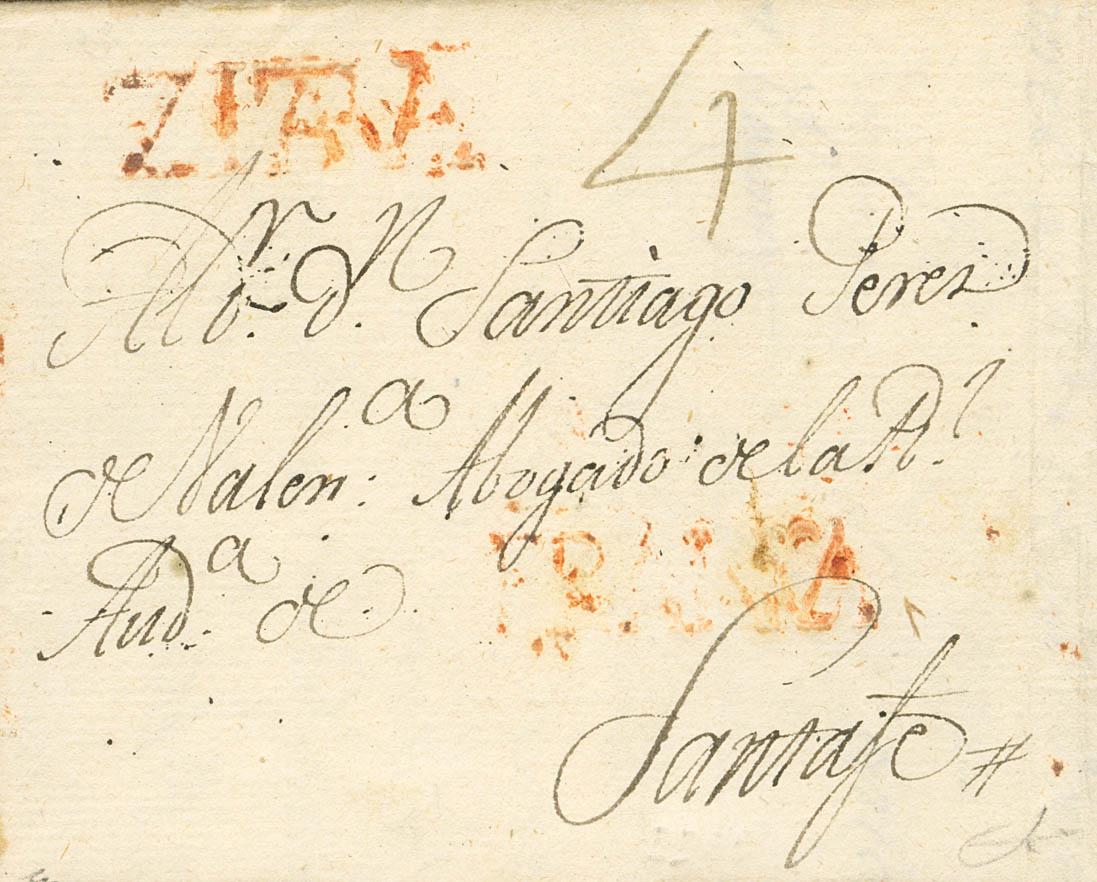 ZITARA 4
Al D.r d.n Santiago Perez
de Valen.a Abogado de la R.l
Aud.a de
FRANCA
Santafe #